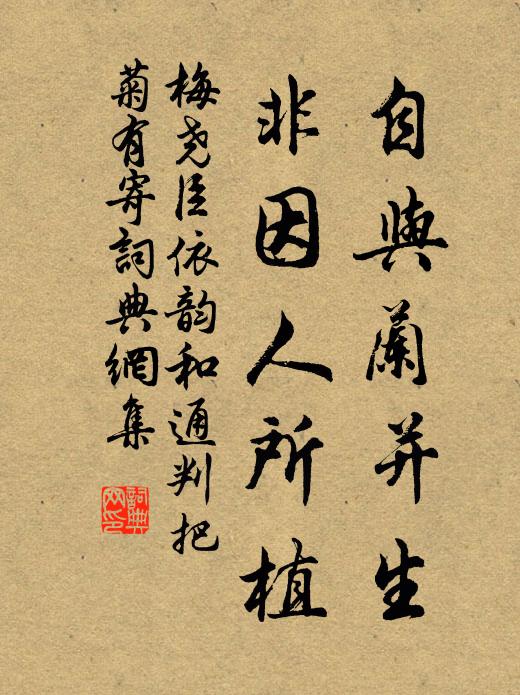 自與蘭并生
非因人所植
梅尧臣依韵和通判把
菊有寄詞典網集
詞典
网印